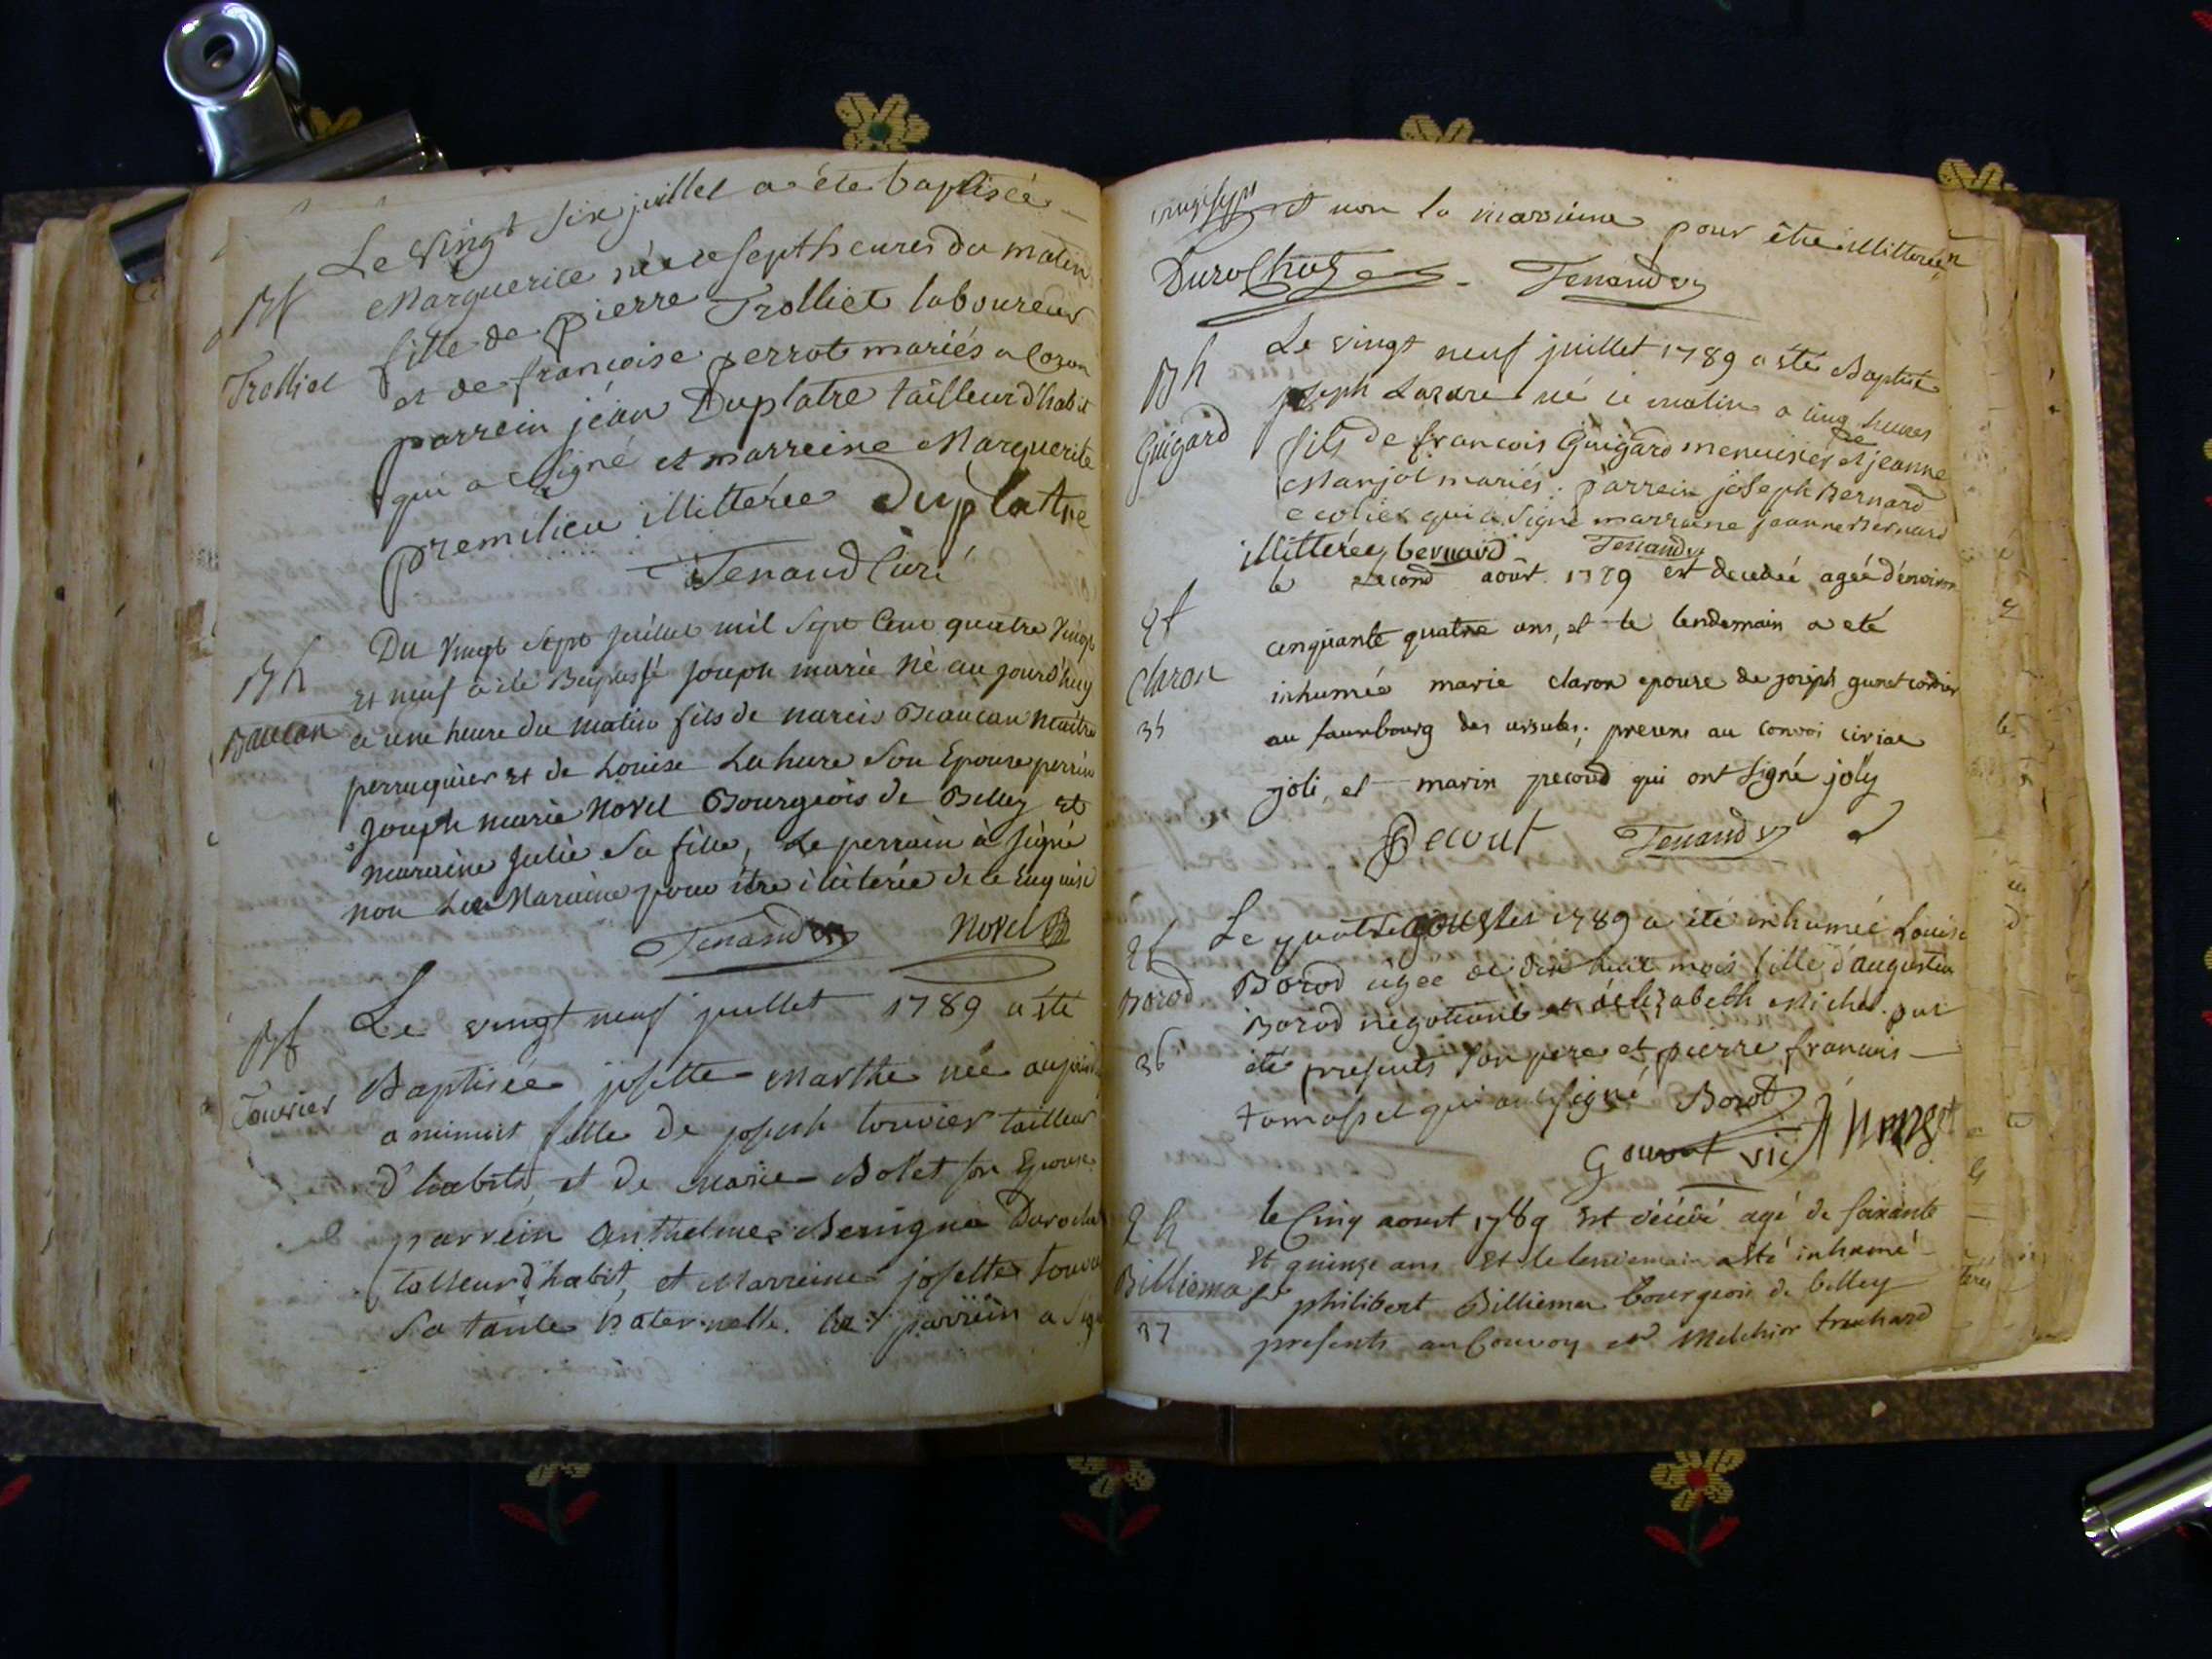 Le vingt six juillet a été baptisée
Bf Marguerite née a sept heures du matin
Trolliet fille de pierre Trolliet laboureur
et de francoise perrot mariés a Coron
parrein jéan Duplatre tailleur d'habit
qui a signé et marreine Marguerite
premilieu illitterée Duplatre
Tenand Curé
Du vingt sept juillet mil sept Cent quatre vingt
Bh et neuf a été Baptissé joseph marie né au jourd'huy
Baucan a une heure du matin fils de narcis Beaucan Maitre
perruquier et de Louise Lahure son Epouse perrin
joseph marie Novel Bourgeois de Belley et
maraine julie sa fille, Le perrain à signé
non La Maraine pour être iliterée de ce Enquise
Tenand Novel
Bf Le vingt neuf juillet 1789 a été
Touvier Baptisée josette Marthe née aujourd
a minuit fille de joseph touvier tailleur
d'habits et de Marie Bolet son Epouse
parrein Anthelme Benigne Duroche
tailleur d'habit, et Marreine josette touvie
sa tante paternelle. le parrein a sig
et non la marreine pour être illitterée
Durochat Tenand
Le vingt neuf juillet 1789 a été Baptisé
Bh joseph Lazare né ce matin a cinq heures
Guigard fils de francois Guigard menuisier et de jeanne
Manjot mariés. parrein joseph Bernard
ecolier qui a signé marraine jeanne Bernard
illitterée bernard Tenand
le second août 1789 est decedée, agée d'environ
Qf cinquante quatre ans, et le lendemain a eté
Claron inhumée marie claron epouse de joseph gunet cordier
35 au fauxbourg des ursules; presens au convoi ciriac
joli, et marin pecoud qui ont signé joly
Pecout Tenand
Qf Le quatre aoust 1789 a été inhumée Louise
Borod Borod agée de dix huit mois fille d'augustin
Borod negotiant et d'elizabeth Michel. ont
36 été presents son pere et pierre francois
tomasset qui ont signé Borod
Gouvert vic
Qh le Cinq aoust 1789 est décédé agé de soixante
et quinze ans et le lendemain a été inhumé
Billiema sr philibert Billiema bourgeois de belley
37 presents au Convoy sr Melchior truchard